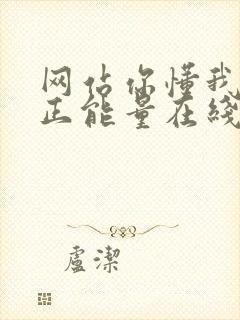 网站你懂我
正能量在线
盧潔